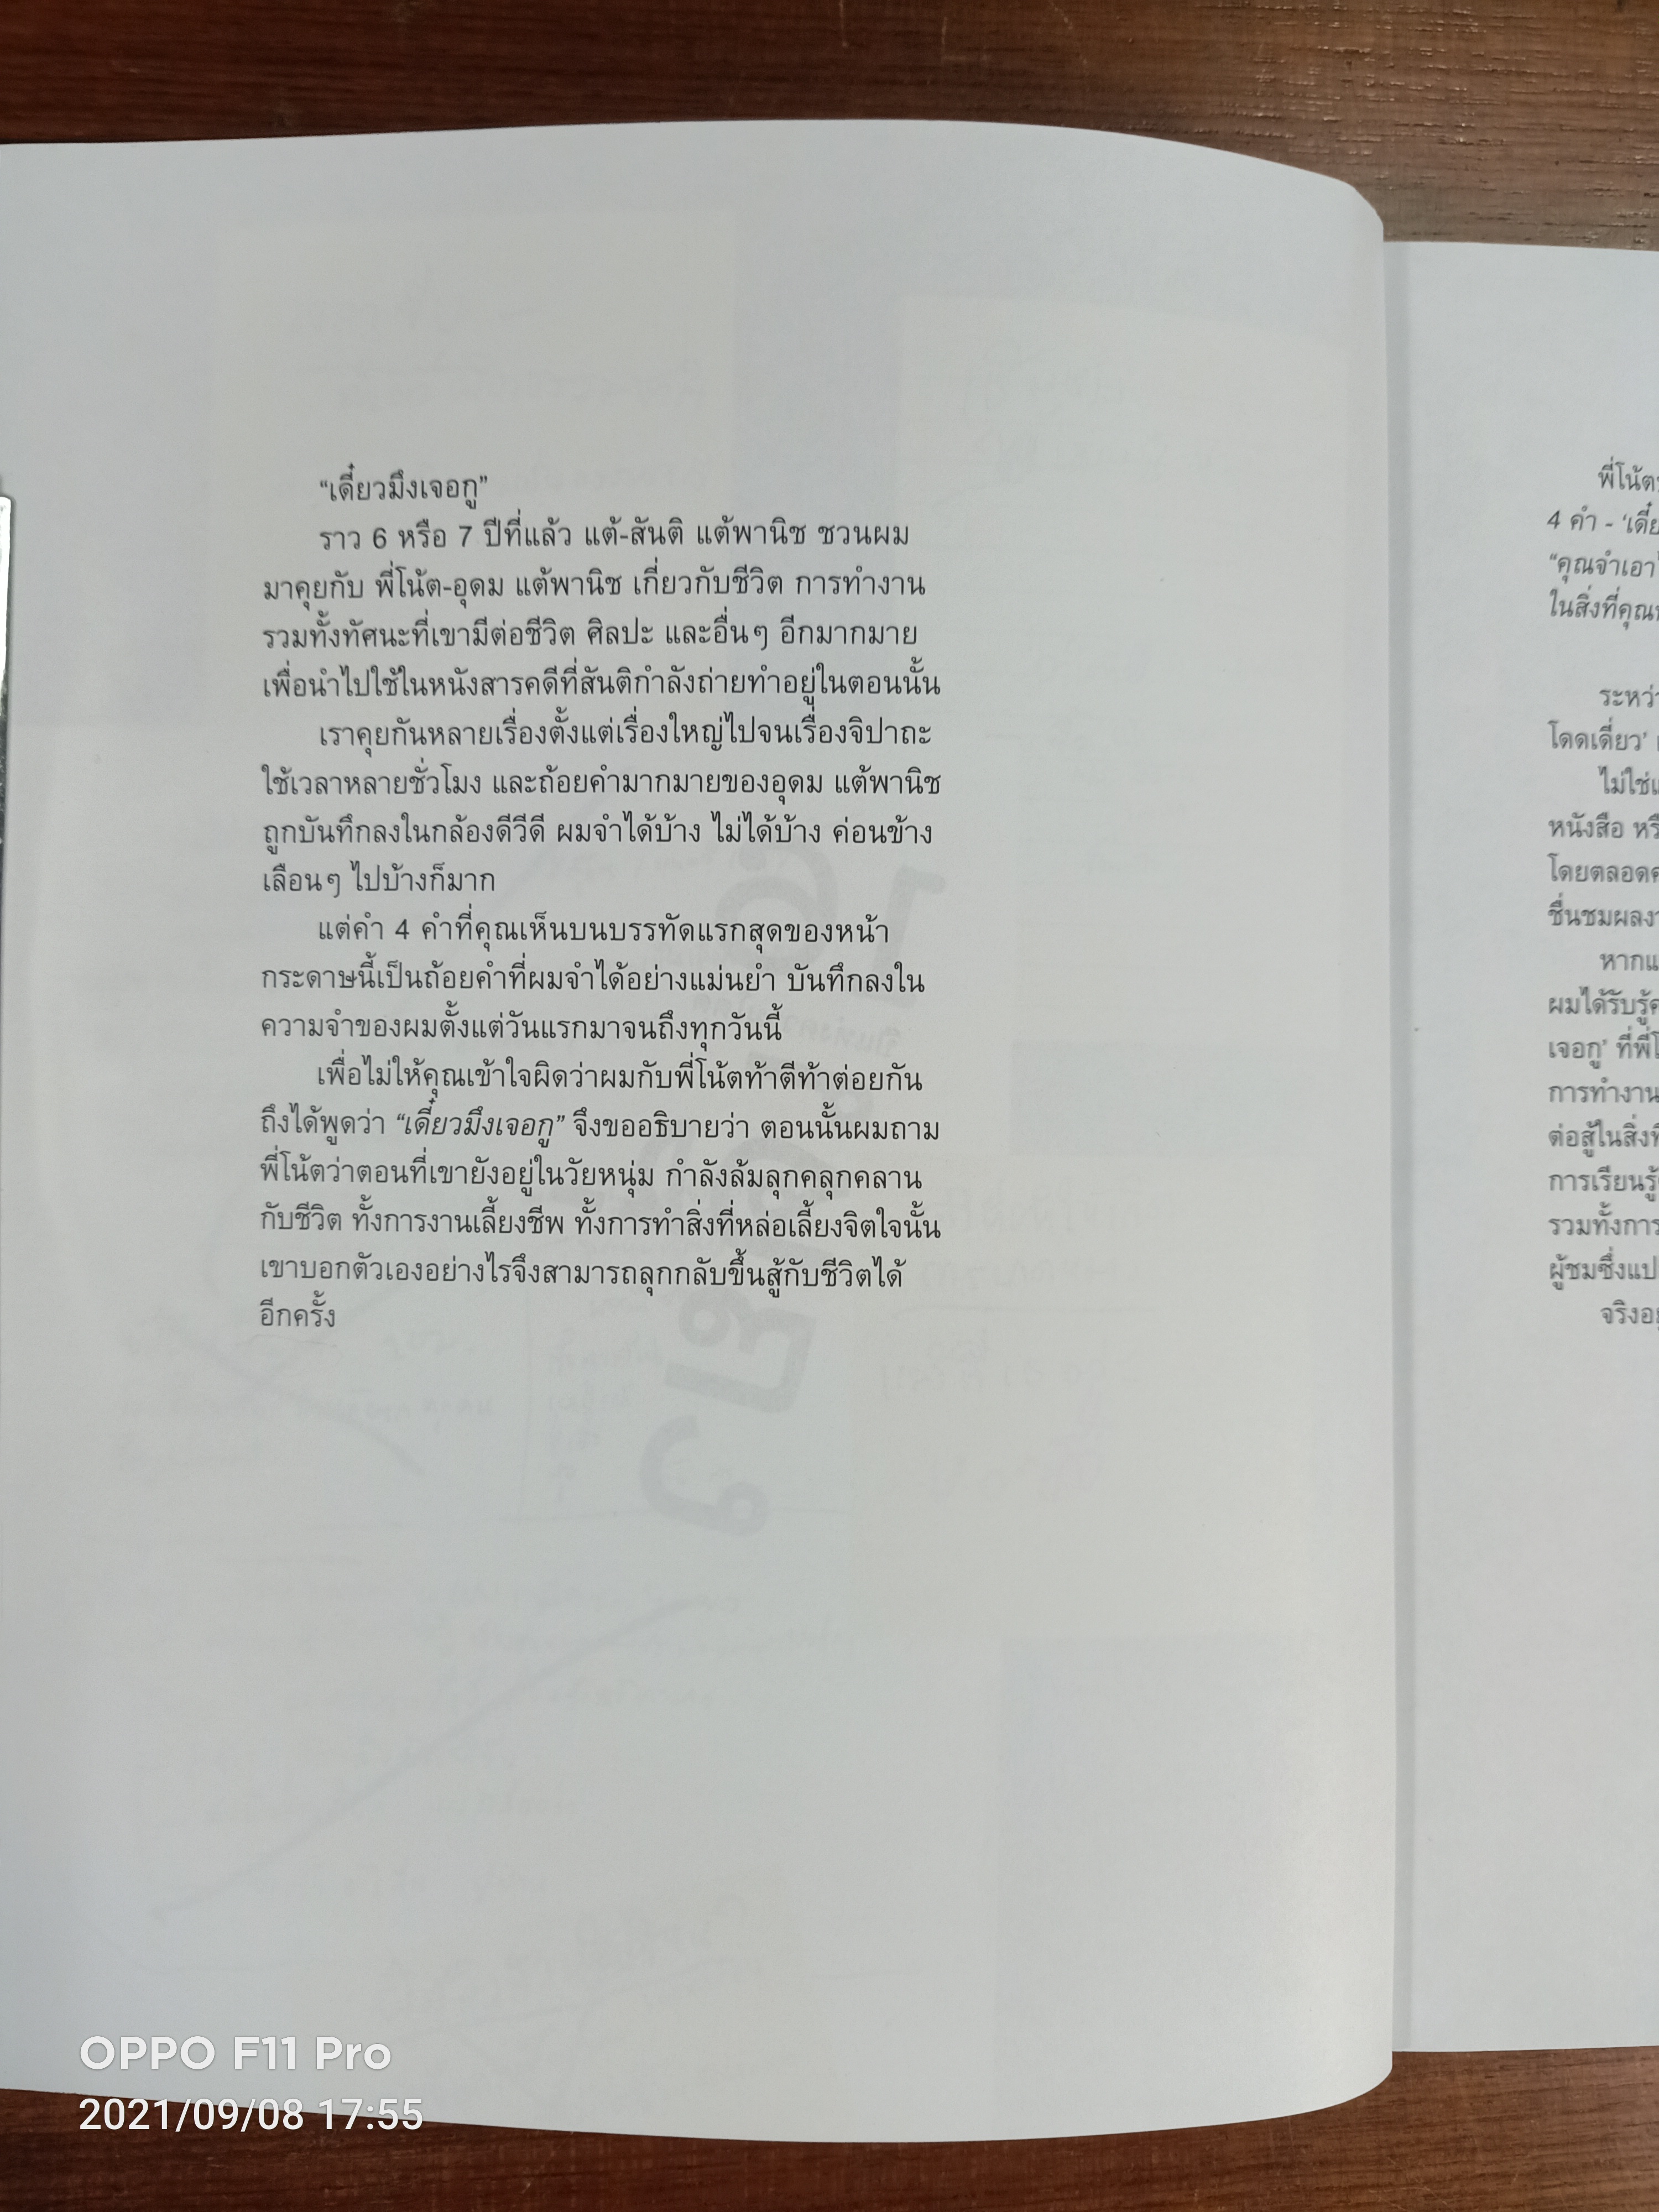 “เดี๋ยวมึงเจอกู”
ราว 6 หรือ 7 ปีที่แล้ว แต้-สันติ แต้พานิช ชวนผม
มาคุยกับ พี่โน้ต-อุดม แต้พานิช เกี่ยวกับชีวิต การทำงาน
รวมทั้งทัศนะที่เขามีต่อชีวิต ศิลปะ และอื่นๆ อีกมากมาย
เพื่อนำไปใช้ในหนังสารคดีที่สันติกำลังถ่ายทำอยู่ในตอนนั้น
เราคุยกันหลายเรื่องตั้งแต่เรื่องใหญ่ไปจนเรื่องจิปาถะ
ใช้เวลาหลายชั่วโมง และถ้อยคำมากมายของอุดม แต้พานิช
ถูกบันทึกลงในกล้องดีวีดี ผมจำได้บ้าง ไม่ได้บ้าง ค่อนข้าง
เลือนๆ ไปบ้างก็มาก
แต่คำ 4 คำที่คุณเห็นบนบรรทัดแรกสุดของหน้า
กระดาษนี้เป็นถ้อยคำที่ผมจำได้อย่างแม่นยำ บันทึกลงใน
ความจำของผมตั้งแต่วันแรกมาจนถึงทุกวันนี้
เพื่อไม่ให้คุณเข้าใจผิดว่าผมกับพี่โน้ตท้าตีท้าต่อยกัน
ถึงได้พูดว่า “เดี๋ยวมึงเจอกู” จึงขออธิบายว่า ตอนนั้นผมถาม
พี่โน้ตว่าตอนที่เขายังอยู่ในวัยหนุ่ม กำลังล้มลุกคลุกคลาน
กับชีวิต ทั้งการงานเลี้ยงชีพ ทั้งการทำสิ่งที่หล่อเลี้ยงจิตใจนั้น
เขาบอกตัวเองอย่างไรจึงสามารถลุกกลับขึ้นสู้กับชีวิตได้
อีกครั้ง
พี่โน้ต
4 คำ - ‘เดี๋ย
“คุณจำเอา
ในสิ่งที่คุณ
ระหว่
โดดเดี่ยว’
ไม่ใช่
หนังสือ หรื
โดยตลอด
ชื่นชมผลง
หาก
ผมได้รับรู้
เจอกู’ ที่พี่
การทำงาน
ต่อสู้ในสิ่งที่
การเรียนรู้
รวมทั้งการ
ผู้ชมซึ่งแป
จริงอ
OPPO F11 Pro
2021/09/08 17:55